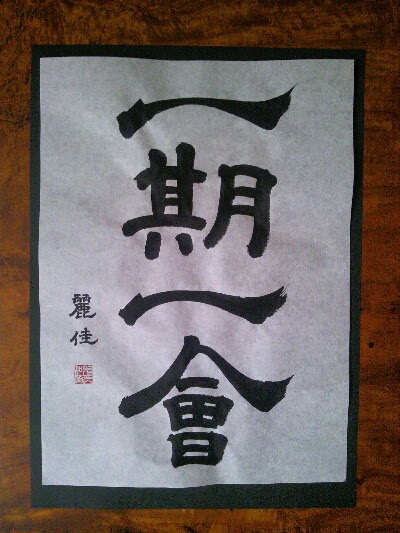 一期一會
麗佳